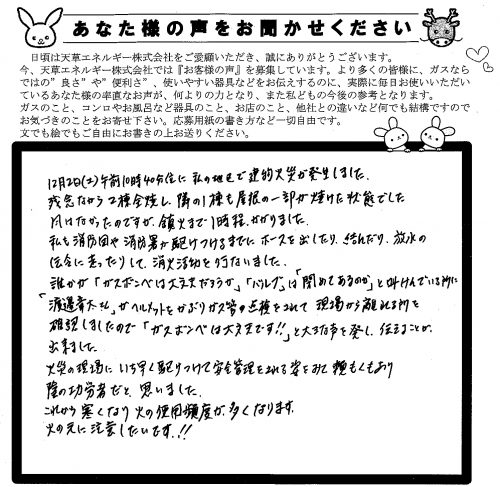 あなた様の声をお聞かせください
日頃は天草エネルギー株式会社をご愛顧いただき、誠にありがとうございます。
今、天草エネルギー株式会社では『お客様の声』を募集しています。より多くの皆様に、ガスなら
ではの”良さ”や”便利さ”、使いやすい器具などをお伝えするのに、実際に毎日お使いいただい
ているあなた様の率直なお声が、何よりの力となり、また私どもの今後の参考となります。
ガスのこと、コンロやお風呂など器具のこと、お店のこと、他社との違いなど何でも結構ですので
お気づきのことをお寄せ下さい。応募用紙の書き方など一切自由です。
文でも絵でもご自由にお書きの上お送りください。
12月2日(土)午前10時40分位に私の地区で建物火災が発生しました。
残念ながら2棟全焼し、隣の1棟も屋根の一部が焼けた状態でした
風はなかったのですが、鎮火まで1時程かかりました。
私も消防団や消防署が駆けつけるまでにホースを出したり、結んだり、放水の
伝令に走ったりして、消火活動を行ないました。
誰かが「ガスボンベは大丈夫だろうか」、「バルブは閉めてあるのか」と叫んでいる所に
がヘルメットをかぶりガス等の点検をされて現場から離れる所を
確認しましたので「ガスボンベは大丈夫です!!」と大きな声を発し、伝えることが
出来ました。
火災の現場にいち早く駆けつけて安全管理をされる姿をみて頼もくもあり
陰の功労者だと思いました。
これから寒くなり火の使用頻度が多くなります。
火の元に注意したいです。!!